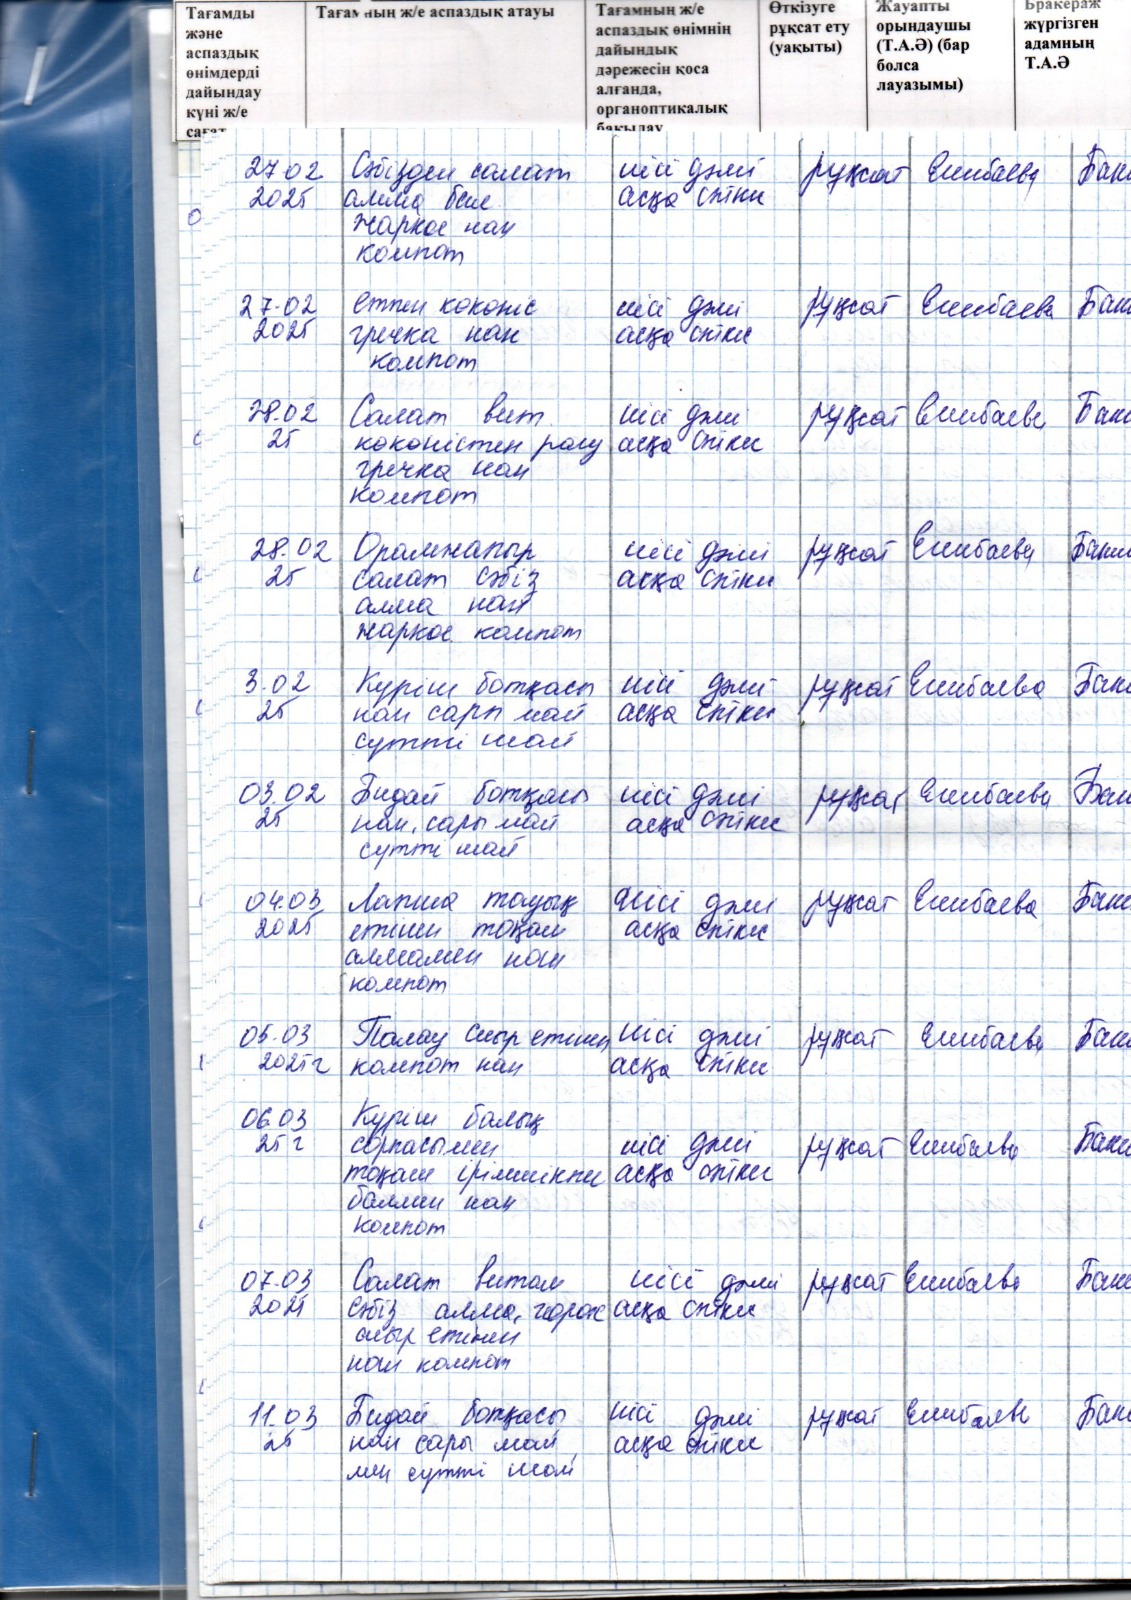 Тағамды
және
аспаздық
өнімдерді
дайындау
күні ж/е
сағат
Тағамның ж/е аспаздық атауы
Тағамның ж/е
аспаздық өнімнің
дайындық
дәрежесін қоса
алғанда,
органоптикалық
бақылау
Өткізуге
рұқсат ету
(уақыты)
Жауапты
орындаушы
(Т.А.Ә) (бар
болса
лауазымы)
Бракераж
жүргізген
адамның
Т.А.Ә
27 02 Сәбізден салат иісі дәмі рұқсат Ешибаева
2025 алма бен асқа сәйкес
жаркое нан
компот
27.02 етпен көкөніс иісі дәмі рұқсат Ешибаева
2025 гречка нан асқа сәйкес
компот
28.02 Салат вит. иісі дәмі рұқсат Ешибаева
25 көкөністен рагу асқа сәйкес
гречка нан
компот
28.02 Орамжапыр иісі дәмі рұқсат Ешибаева
25 салат сәбіз асқа сәйкес
алма нан
жаркое компот
3.02 Күріш ботқасы иісі дәмі рұқсат Ешибаева
25 нан сары май асқа сәйкес
сүтті шай
03.02 Бидай ботқасы иісі дәмі рұқсат Ешибаева
25 нан, сары май асқа сәйкес
сүтті шай
04.03 Лапша тауық иісі дәмі рұқсат Ешибаева
2025 етімен тоқаш асқа сәйкес
алмамен нан
компот
05.03 Палау сиыр етінен иісі дәмі рұқсат Ешибаева
2025г компот нан асқа сәйкес
06.03 Күріш балық
25 г сорпасымен иісі дәмі рұқсат Ешибаева
тоқаш ірімшікпен асқа сәйкес
нан
компот
07.03 Салат витам иісі дәмі рұқсат Ешибаева
2025 сәбіз алма, горох асқа сәйкес
сиыр етінен
нан компот
11.03 Бидай ботқасы иісі дәмі рұқсат Ешибаева
25 нан сары май асқа сәйкес
мен сүтті шай